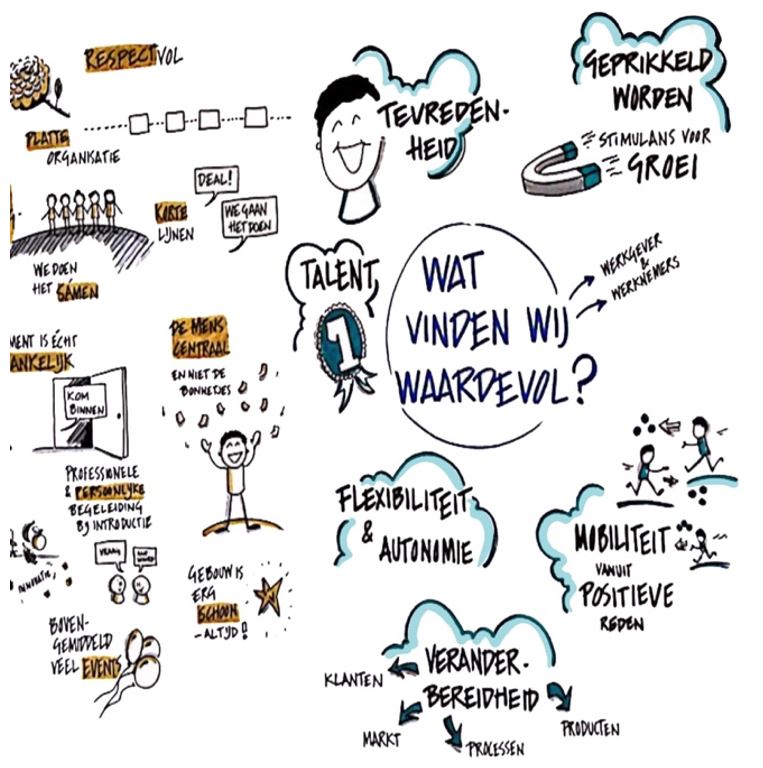 RESPECTVOL
PLATTE
ORGANISATIE
KORTE
LIJNEN
DEAL!
WE GAAN
HET DOEN
WE DOEN
HET SÁMEN
MENT IS ÉCHT
ANKELIJK
KOM
BINNEN
PROFESSIONELE
& PERSOONLIJKE
BEGELEIDING
BIJ INTRODUCTIE
DE MENS
CENTRAAL
EN NIET DE
BONNETJES
VRAAG
GEBOUW IS
ERG
SCHOON
-ALTIJD!
BOVEN-
GEMIDDELD
VEEL EVENTS
TEVREDEN-
HEID
GEPRIKKELD
WORDEN
STIMULANS VOOR
GROEI
TALENT
1
WAT
VINDEN WIJ
WAARDEVOL?
WERKGEVER
&
WERKNEMERS
FLEXIBILITEIT
&
AUTONOMIE
MOBILITEIT
VANUIT
POSITIEVE
REDEN
VERANDER-
BEREIDHEID
KLANTEN
MARKT
PROCESSEN
PRODUCTEN